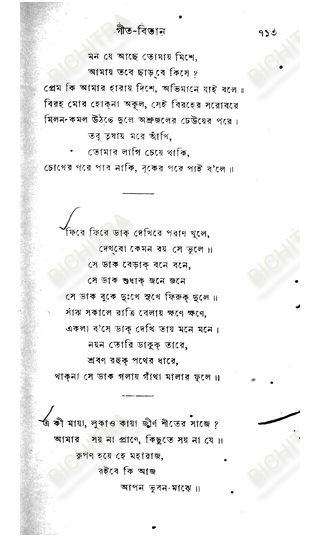 গীত-বিতান ৭১৩
মন যে আছে তোমায় মিশে,
আমায় তবে ছাড়বে কিসে ?
প্রেম কি আমার হারায় দিশে, অভিমানে যাই বলে ॥
বিরহ মোর হোক্‌না অকূল, সেই বিরহের সরোবরে
মিলন-কমল উঠচে দুলে অশ্রুজলের ঢেউয়ের পরে ।
তবু তৃষায় মরে আঁখি,
তোমার লাগি চেয়ে থাকি,
চোখের পরে পাব নাকি, বুকের পরে পাই ব'লে ॥
ফিরে ফিরে ডাক্ দেখিরে পরাণ খুলে,
দেখ্‌বো কেমন রয় সে ভুলে ॥
সে ডাক বেড়াক্ বনে বনে,
সে ডাক শুধাক্ জনে জনে
সে ডাক বুকে দুঃখে সুখে ফিরুক্ দুলে ॥
সাঁঝ সকালে রাত্রি বেলায় ক্ষণে ক্ষণে,
একলা ব'সে ডাক্ দেখি তায় মনে মনে ।
নয়ন তোরি ডাকুক্ তারে,
শ্রবণ রহুক্ পথের ধারে,
থাক্‌না সে ডাক গলায় গাঁথা মালার ফুলে ॥
এ কী মায়া, লুকাও কায়া জীর্ণ শীতের সাজে ?
আমার সয় না প্রাণে, কিছুতে সয় না যে ॥
কৃপণ হয়ে হে মহারাজ,
রইবে কি আজ
আপন ভুবন-মাঝে ॥
BICHITRA
BICHITRA
BICHITRA
BICHITRA
BICHITRA
BICHITRA